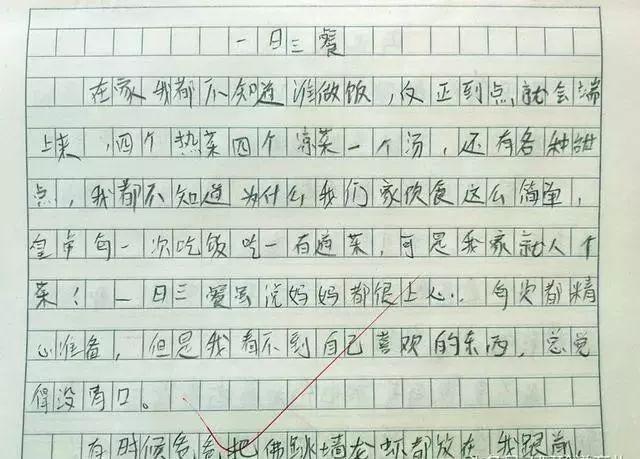 一日三餐
在家我都不知道谁做饭，反正到点就会端
上来，四个热菜四个凉菜一个汤，还有各种甜
点，我都不知道为什么我们家饮食这么简单，
皇帝每一次吃饭吃一百道菜，可是我家就八个
菜！一日三餐虽说妈妈都很上心，每次都精
心准备，但是我看不到自己喜欢的东西，总觉
得没胃口。
有时候爸爸把佛跳墙龙虾都放在我跟前，